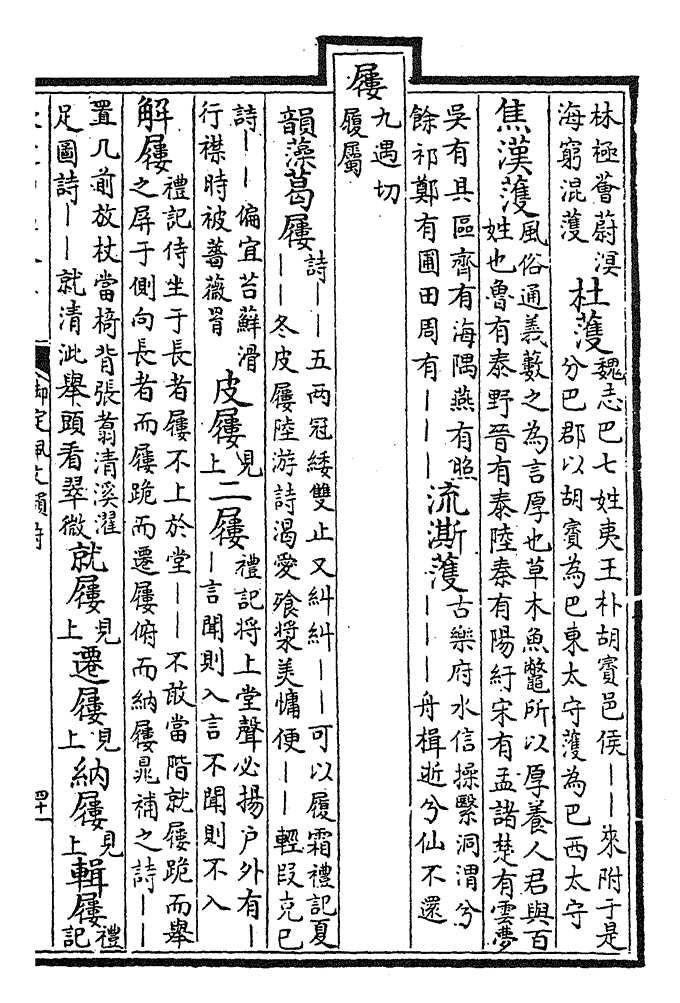 林極薈蔚溟
海窮混䕶
杜䕶
魏志巴七姓夷王朴胡賨邑侯——來附于是
分巴郡以胡賨為巴東太守䕶為巴西太守
焦漢䕶
風俗通義藪之為言厚也草木魚鼈所以厚養人君與百
姓也魯有泰野晉有泰陸秦有陽紆宋有孟諸楚有雲夢
吳有具區齊有海隅燕有昭
餘祁鄭有圃田周有———
流澌䕶
古樂府水信操繄洞渭兮
———舟楫逝兮仙不還
屨
九遇切
履屬
韻藻
葛屨
詩——五兩冠緌雙止又糾糾——可以履霜禮記夏
——冬皮屨陸游詩渴愛飱漿美慵便——輕段克己
詩——偏宜苔蘚滑
行襟時被薔薇罥
皮屨
見
上
二屨
禮記將上堂聲必揚户外有—
—言聞則入言不聞則不入
解屨
禮記侍坐于長者屨不上於堂——不敢當階就屨跪而舉
之屏于側向長者而屨跪而遷屨俯而納屨晁補之詩——
置几前放杖當椅背張翥清溪濯
足圖詩——就清泚舉頭看翠微
就屨
見
上
遷屨
見
上
納屨
見
上
輯屨
禮
記
御定佩文韻府
四十一